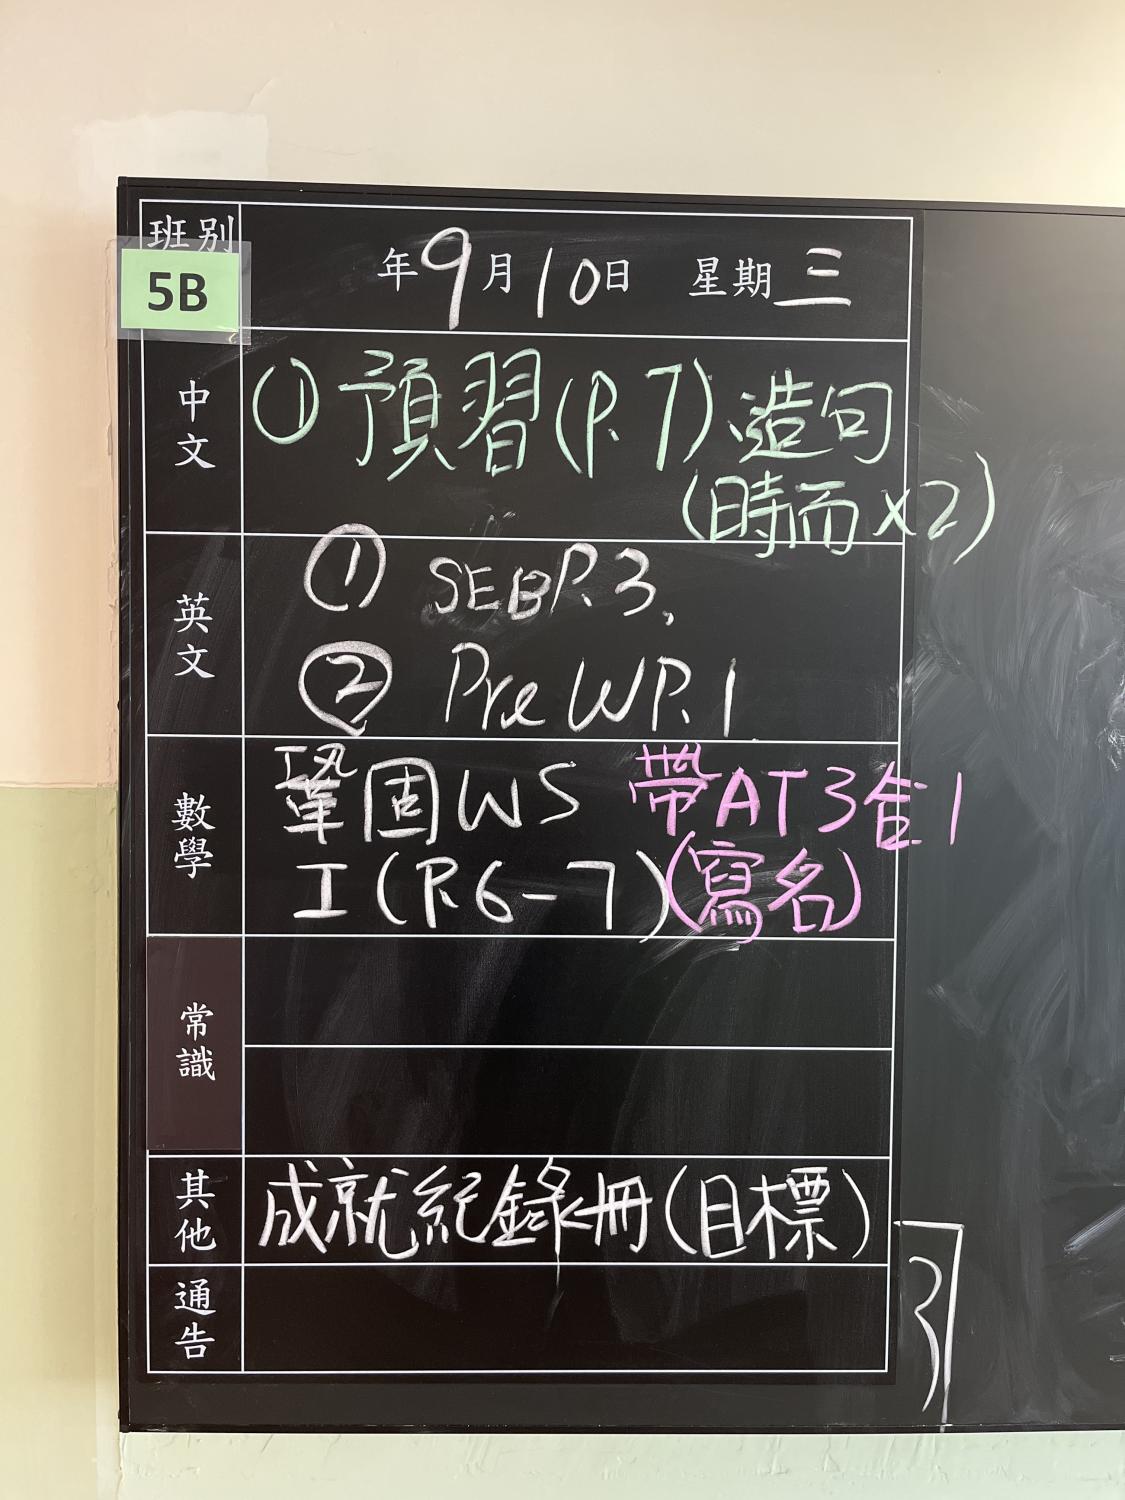 班別
5B
年9月10日 星期三
中文
①預習(P.7)、造句
(時而x2)
英文
① SEBP.3,
② Pre WP.1
數學
鞏固WS 帶AT3合1
I(P.6-7)(寫名)
常識
其他
成就紀錄冊(目標)
通告
3